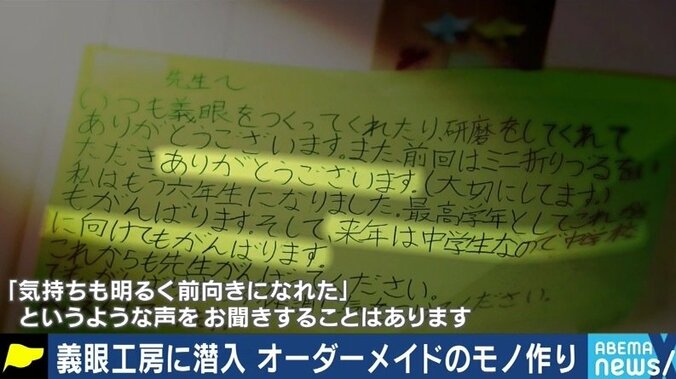 先生へ
いつも義眼をつくってくれたり、研磨をしてくれて
ありがとうございます。また、前回はミニ折りつるをい
ただきありがとうございます。(大切にしてます。)
私はもう六年生になりました。最高学年としてこれから
もがんばります。そして、来年は中学生なので中学校
に向けてもがんばります。
これからも先生がんばってください。
「気持ちも明るく前向きになれた」
というような声をお聞きすることはあります
義眼工房に潜入 オーダーメイドのモノ作り
ABEMA
NEWS/